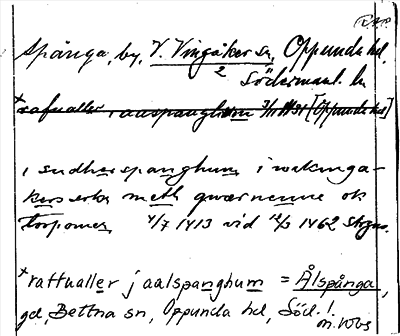 Spånga, by, V. Vingåker sn, Oppunda hd,
2
Södermanl. ln
*rafualler i aaspanghum [Oppunda hd]
i sudherspanghum i wakinga-
kers sokn meth qwarnenne ok
torpomen 4/7 1413 vid 1462
*rattualler j aalspanghum = Ålspånga,
gd, Bettna sn, Oppunda hd, Söd. l.